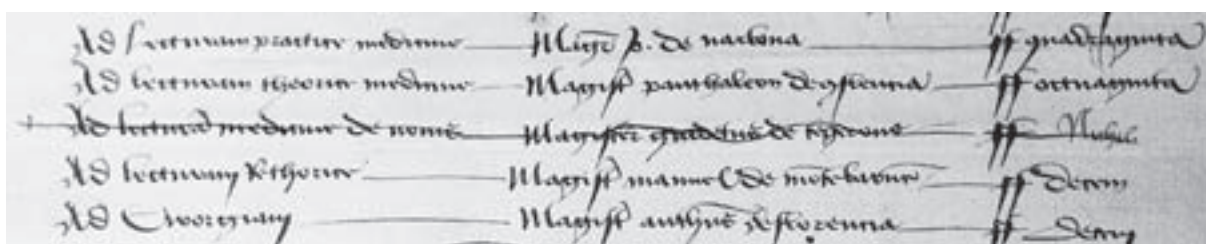 Ad lecturam practice medicine Magr̄ p. de narbona ff quadraginta
Ad lecturam theorice medicine Magist̄ panthaleon de ꝯflencia ff octuaginta
Ad lecturā medicine de nome Magister de ff Nichil
Ad lecturam Rethorice Magist̄ manuel de ff decem
Ad Cirorgiam Magist̄ anthus de florencia ff decem